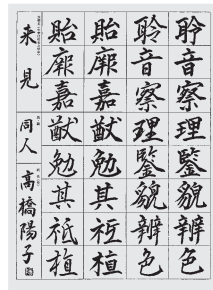 聆音察理鑒貌辨色
聆音察理鑒貌辨色
貽厥嘉猷勉其祗植
貽厥嘉猷勉其祗植
来見
同人
高橋陽子